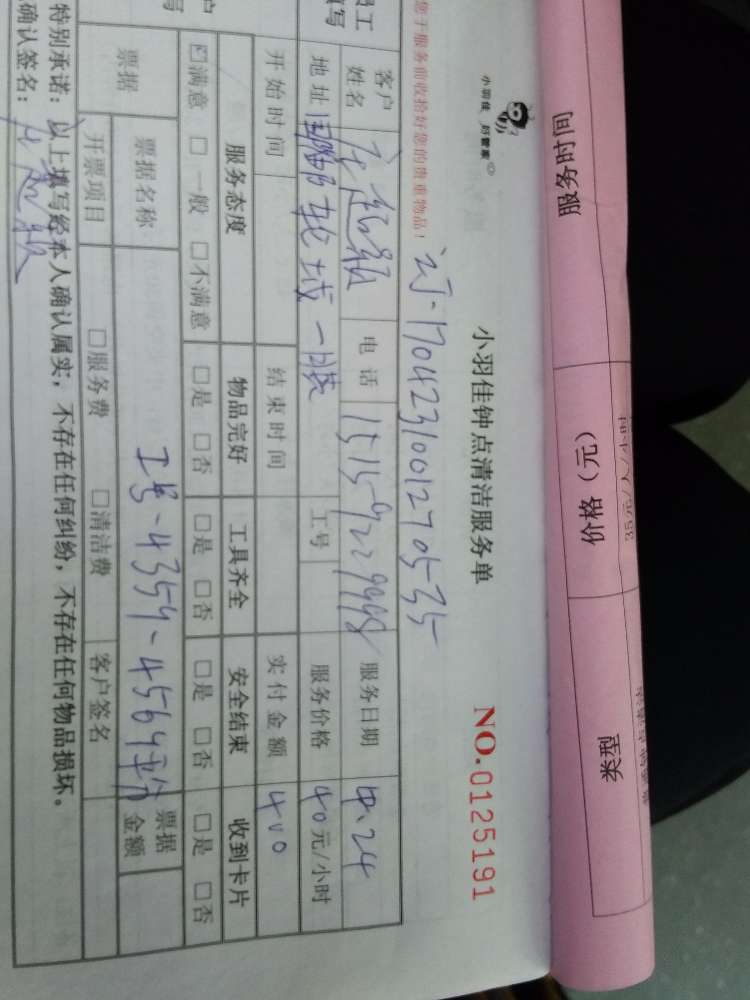 服务时间 价格（元） 类型
35元/人/小时
小羽佳 好管家
小羽佳钟点清洁服务单 NO.0125191
您于服务前收拾好您的贵重物品！
订.1704231001270535
客户姓名 电话 服务日期 4.24
地址 工号 服务价格 40元/小时
开始时间 结束时间 实付金额 400
服务态度 物品完好 工具齐全 安全结束 收到卡片
☑满意 □一般 □不满意 □是 □否 □是 □否 □是 □否 □是 □否
票据 票据名称 工号-4359-4564 票据金额
开票项目 □服务费 □清洁费 客户签名
特别承诺：以上填写经本人确认属实，不存在任何纠纷，不存在任何物品损坏。
确认签名：